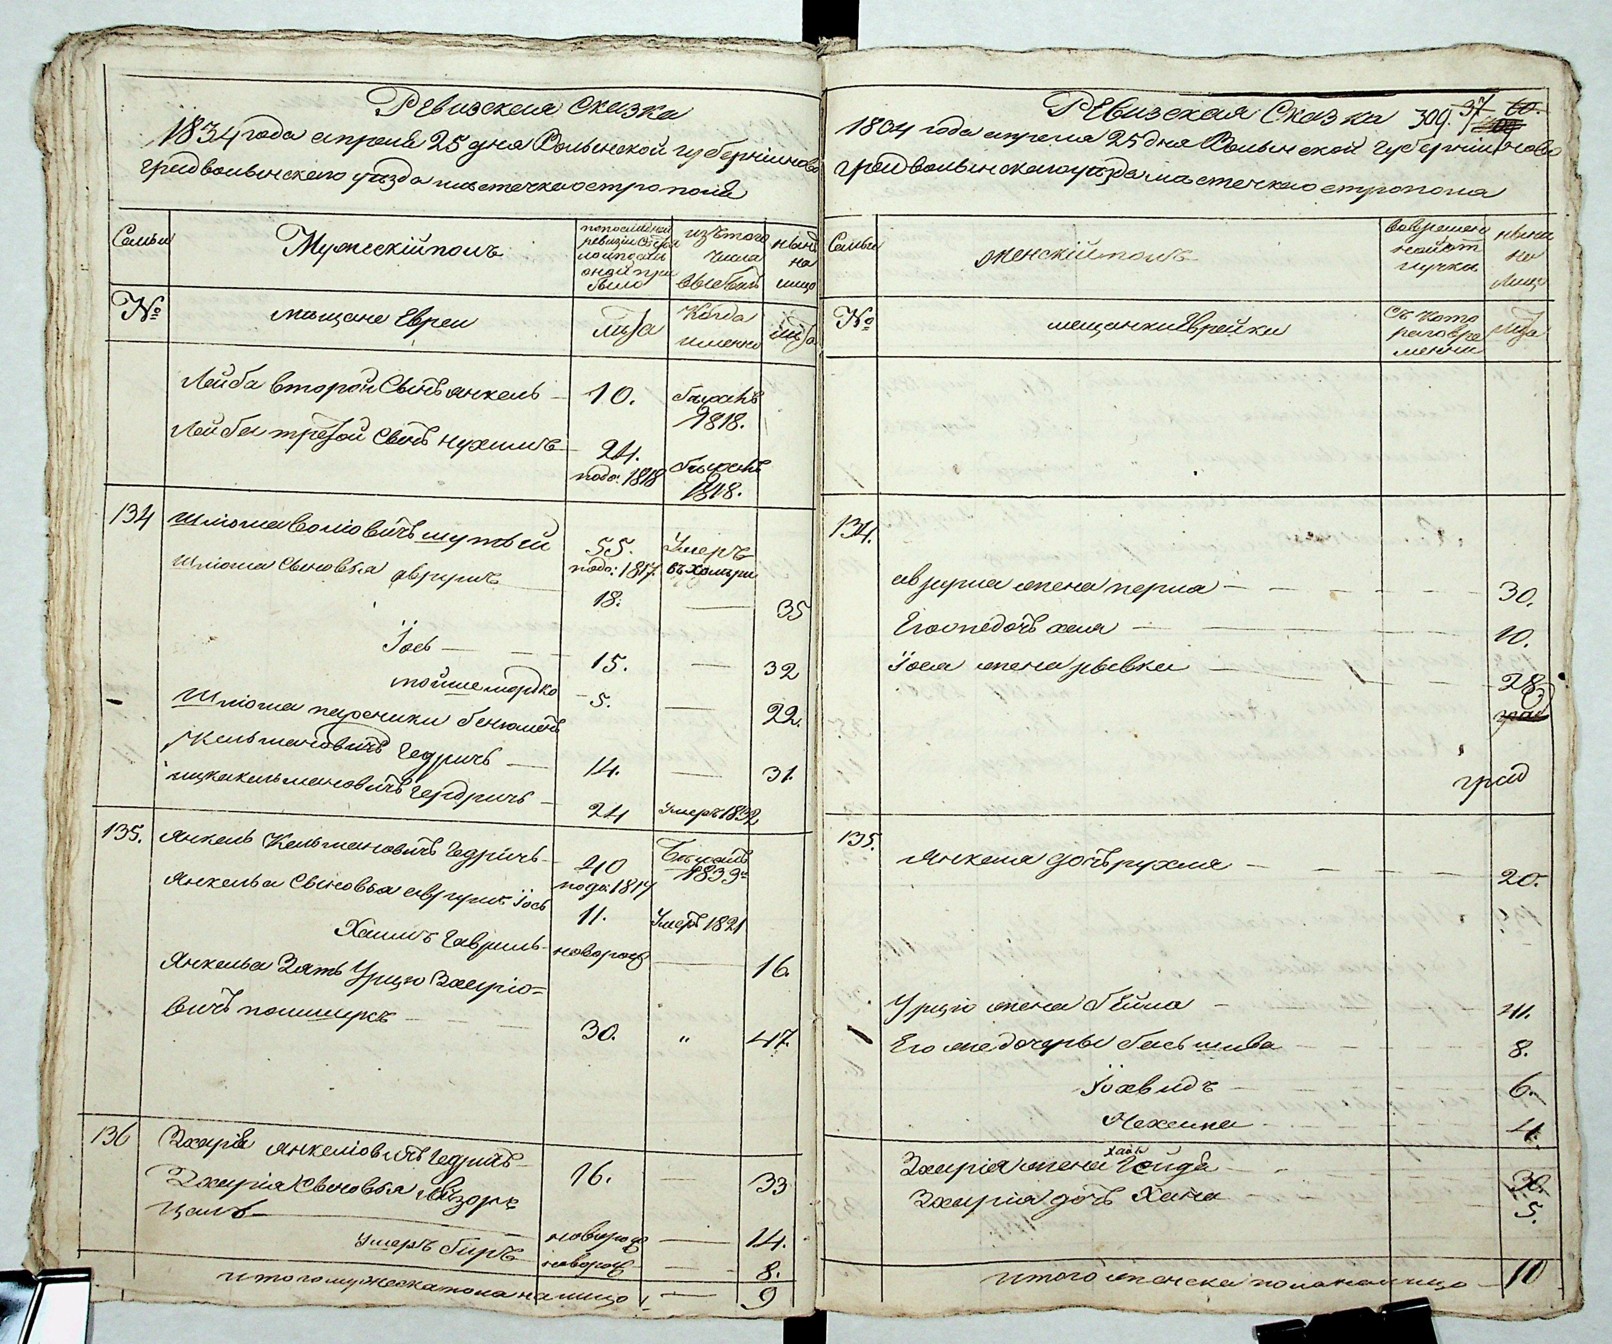 Ревизская Сказка
1834 года апреля 25 дня Волынской губернии ново
градволынского уезда местечка острополя
Семьи
Мужескій полъ
по последней
ревизіи состоя
ло и после
оной при
было
изъ того
числа
выбыло
ныне
на
лицо
№
мещане Евреи
лета
Когда
именно
лета
Лейба второй Сынъ янкель — 10. бежалъ
1818.
Лейбы третой Сынъ нухимъ — 24. бежалъ
подо: 1818 1818.
134 Шліома Волiовичъ шутый 55. Умеръ
подо: 1817.
Шліома Сыновья аврумъ — 18. — 35
Іось — 15. — 32
мойше мордко — 5. — 22.
Шліома пасеники бенюминъ
Кельмановичъ Гедричъ — 14. — 31.
ицка кельмановичъ Гердричъ — 24 Умеръ 1832
135. Янкель Кельмановичъ Гедричъ — 40 Бежалъ
подо: 1817
Янкеля Сыновья аврумъ Іось 11. Умеръ 1821
Хаимъ Гавриль — новорож — 16.
Янкеля Зять Урцю Зхаріо=
вичъ — 30. „ 47.
136 Зхарія янкеліовичъ Гедричъ — 16. — 33
Зхарія Сыновья Лейзоръ
новорож — 14.
новорож — 8.
итого мужеска пола на лицо — 9
Ревизская Сказка 309. 37 60.
1834 года апреля 25 дня Волынской губерніи ново
градволынского уезда местечка остропола
Семьи
Женскій полъ
во времен
ной от
лучке
ныне
на
лицо
№
мещанки Еврейки
Съ кото
раго вре
мени
лета
134.
аврума жена перла — 30.
Его же дочь хая — 10.
Іося жена рывка — 28
град
135.
Янкеля дочь рухля — 20.
Урцю жена бейла — 41.
Его же дочеры басьшева — 8.
Іохвидъ — 6.
Нехама — 4.
хая
Зхарія жена Гойда — 30.
Зхарія дочь Хана — 5.
итого женска пола на лицо — 10